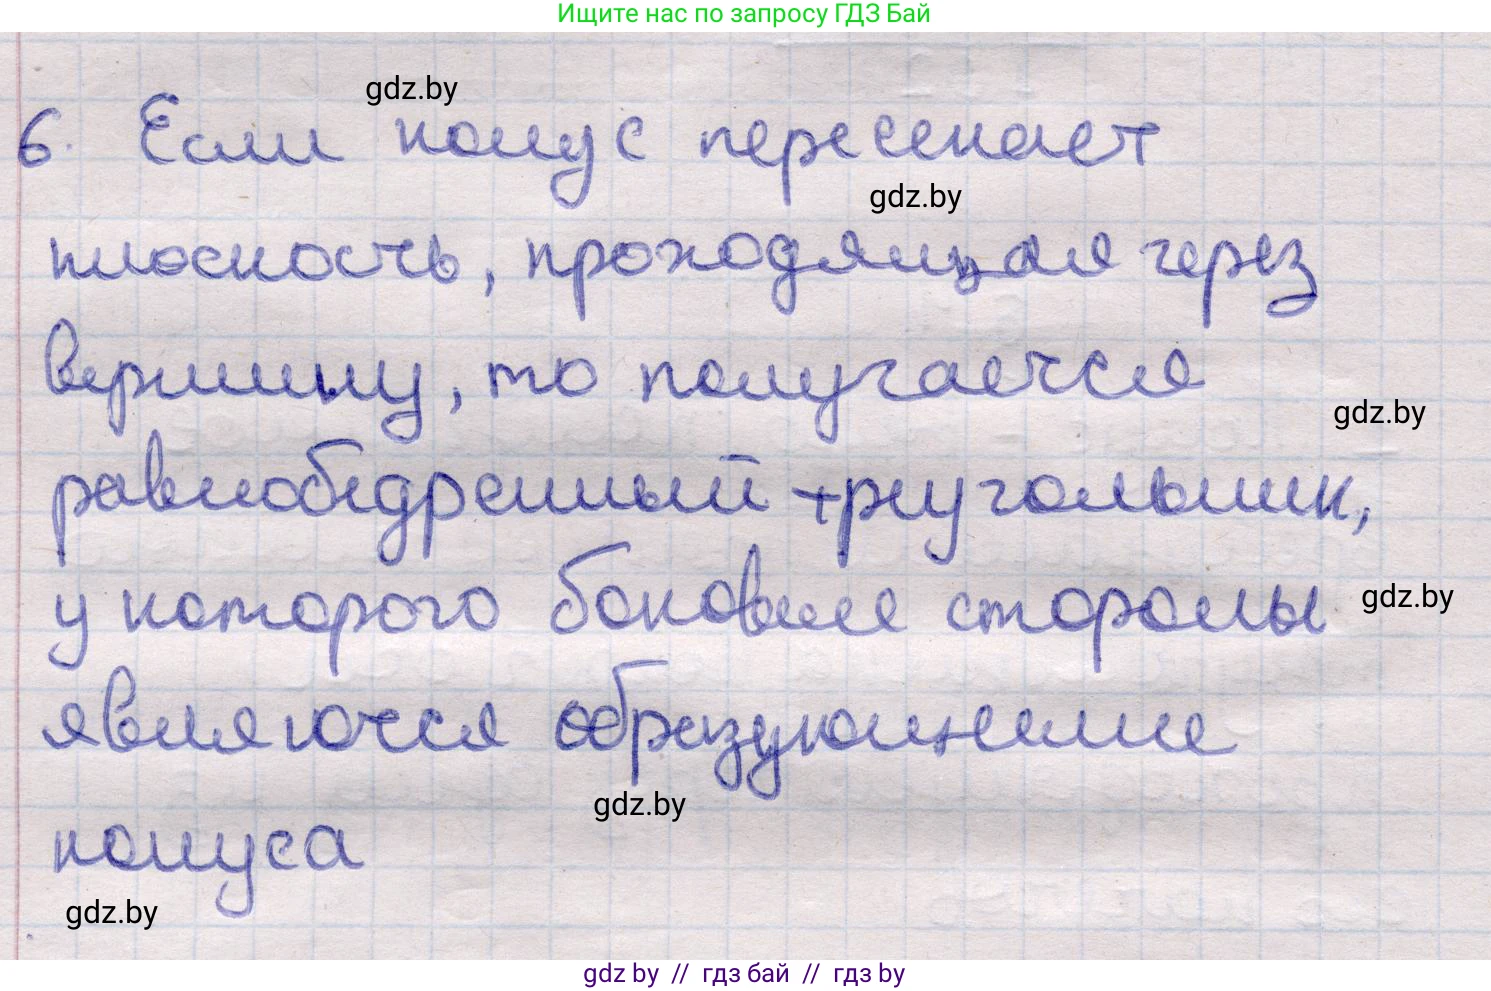 Ищите нас по запросу ГДЗ Бай
gdz.by
6. Если конус пересекает
gdz.by
плоскость, проходящая через
вершину, то получается
gdz.by
равнобедренный треугольник,
у которого боковые стороны
gdz.by
являются образующими
gdz.by
конуса
gdz.by
gdz by // гдз бай // гдз by